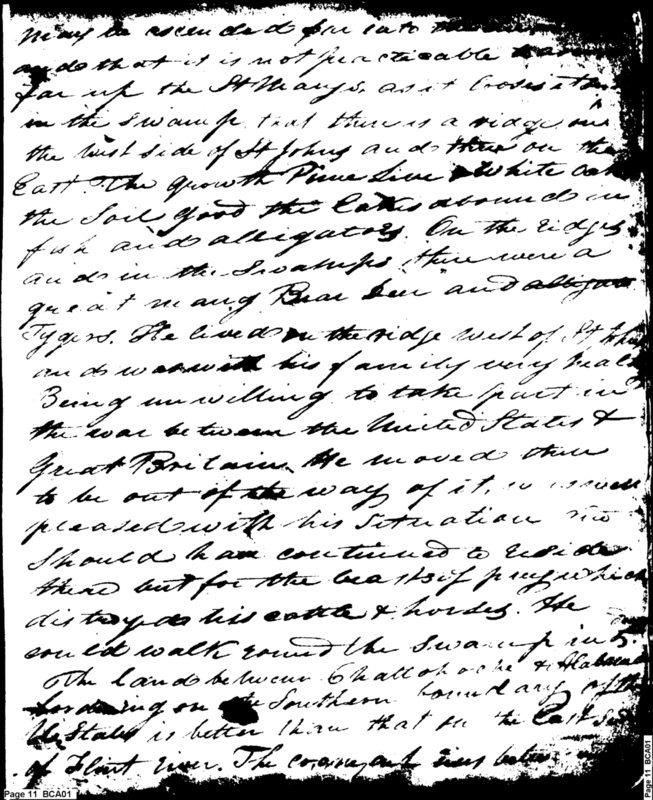 may be ascended far into the
and that it is not practicable
far up the St Marys, as it looses itself
in the swamp, that there is a ridge on
the west side of St Johns and then on the
East. The growth Pine Live & White Oak
the Soil good the Lakes abound in
fish and alligators. On the ridges
and in the Swamps there were a
great many Bear Deer and
Tygers. He lived on the ridge west of St Johns
and was with his family very
Being unwilling to take part in
the war between the United States &
Great Britain. He moved there
to be out of the way of it,
pleased with his situation
should have continued to reside
there but for the beasts of prey which
distroyed his cattle & horses. He
could walk round the swamp in 5
The land between Chattohoche & Alabama
bordering on the Southern boundary of the
U States is better than that on the East side
of Flint river. The
Page 11 BCA01
Page 11 BCA01